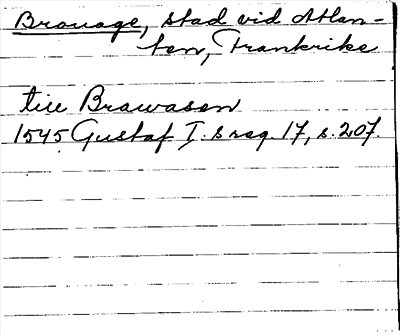 Brouage, stad vid Atlan-
ten, Frankrike
till Brawasen
1545 Gustaf I.s reg. 17, s. 207.